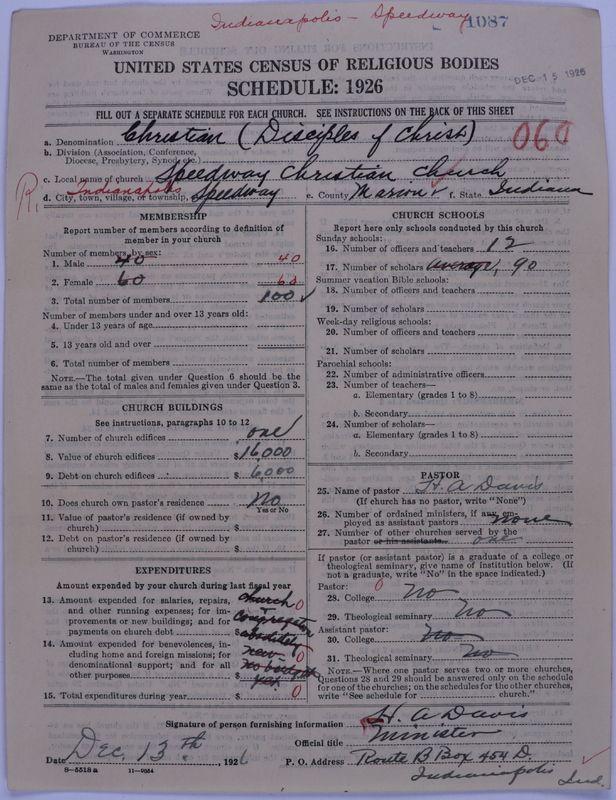 Indianapolis - Speedway
1087
DEPARTMENT OF COMMERCE
BUREAU OF THE CENSUS
WASHINGTON
UNITED STATES CENSUS OF RELIGIOUS BODIES
SCHEDULE: 1926
DEC 15 1926
FILL OUT A SEPARATE SCHEDULE FOR EACH CHURCH. SEE INSTRUCTIONS ON THE BACK OF THIS SHEET
a. Denomination Christian (Disciples of Christ)
060
b. Division (Association, Conference,
Diocese, Presbytery, Synod, etc.)
c. Local name of church Speedway Christian Church
R. Indianapolis
d. City, town, village, or township, Speedway e. County Marion f. State Indiana
MEMBERSHIP
Report number of members according to definition of
member in your church
Number of members by sex:
1. Male 40 40
2. Female 60 60
3. Total number of members 100
Number of members under and over 13 years old:
4. Under 13 years of age
5. 13 years old and over
6. Total number of members
NOTE.—The total given under Question 6 should be the
same as the total of males and females given under Question 3.
CHURCH BUILDINGS
See instructions, paragraphs 10 to 12
7. Number of church edifices one
8. Value of church edifices $16,000
9. Debt on church edifices $ 6,000
10. Does church own pastor's residence No
Yes or No
11. Value of pastor's residence (if owned by
church) $
12. Debt on pastor's residence (if owned by
church) $
EXPENDITURES
Amount expended by your church during last fiscal year
13. Amount expended for salaries, repairs, church 0
and other running expenses; for im-
provements or new buildings; and for congregation
payments on church debt $ absolutely
14. Amount expended for benevolences, in- new 0
cluding home and foreign missions; for
denominational support; and for all no budget
other purposes $ yet.
15. Total expenditures during year $ 0
CHURCH SCHOOLS
Report here only schools conducted by this church
Sunday schools:
16. Number of officers and teachers 12
17. Number of scholars average, 90
Summer vacation Bible schools:
18. Number of officers and teachers
19. Number of scholars
Week-day religious schools:
20. Number of officers and teachers
21. Number of scholars
Parochial schools:
22. Number of administrative officers
23. Number of teachers—
a. Elementary (grades 1 to 8)
b. Secondary
24. Number of scholars—
a. Elementary (grades 1 to 8)
b. Secondary
PASTOR
25. Name of pastor H. A Davis
(If church has no pastor, write "None")
26. Number of ordained ministers, if any, em-
ployed as assistant pastors None
27. Number of other churches served by the
pastor or his assistants one
If pastor (or assistant pastor) is a graduate of a college or
theological seminary, give name of institution below. (If
not a graduate, write "No" in the space indicated.)
Pastor: 0
28. College No
29. Theological seminary No
Assistant pastor:
30. College No
31. Theological seminary No
NOTE.—Where one pastor serves two or more churches,
Questions 28 and 29 should be answered only on the schedule
for one of the churches; on the schedules for the other churches,
write "See schedule for church."
Signature of person furnishing information H. A Davis
Official title Minister
Date Dec. 13th, 1926 P. O. Address Route B Box 454 D.
Indianapolis Ind.
8—5518 a 11—9054